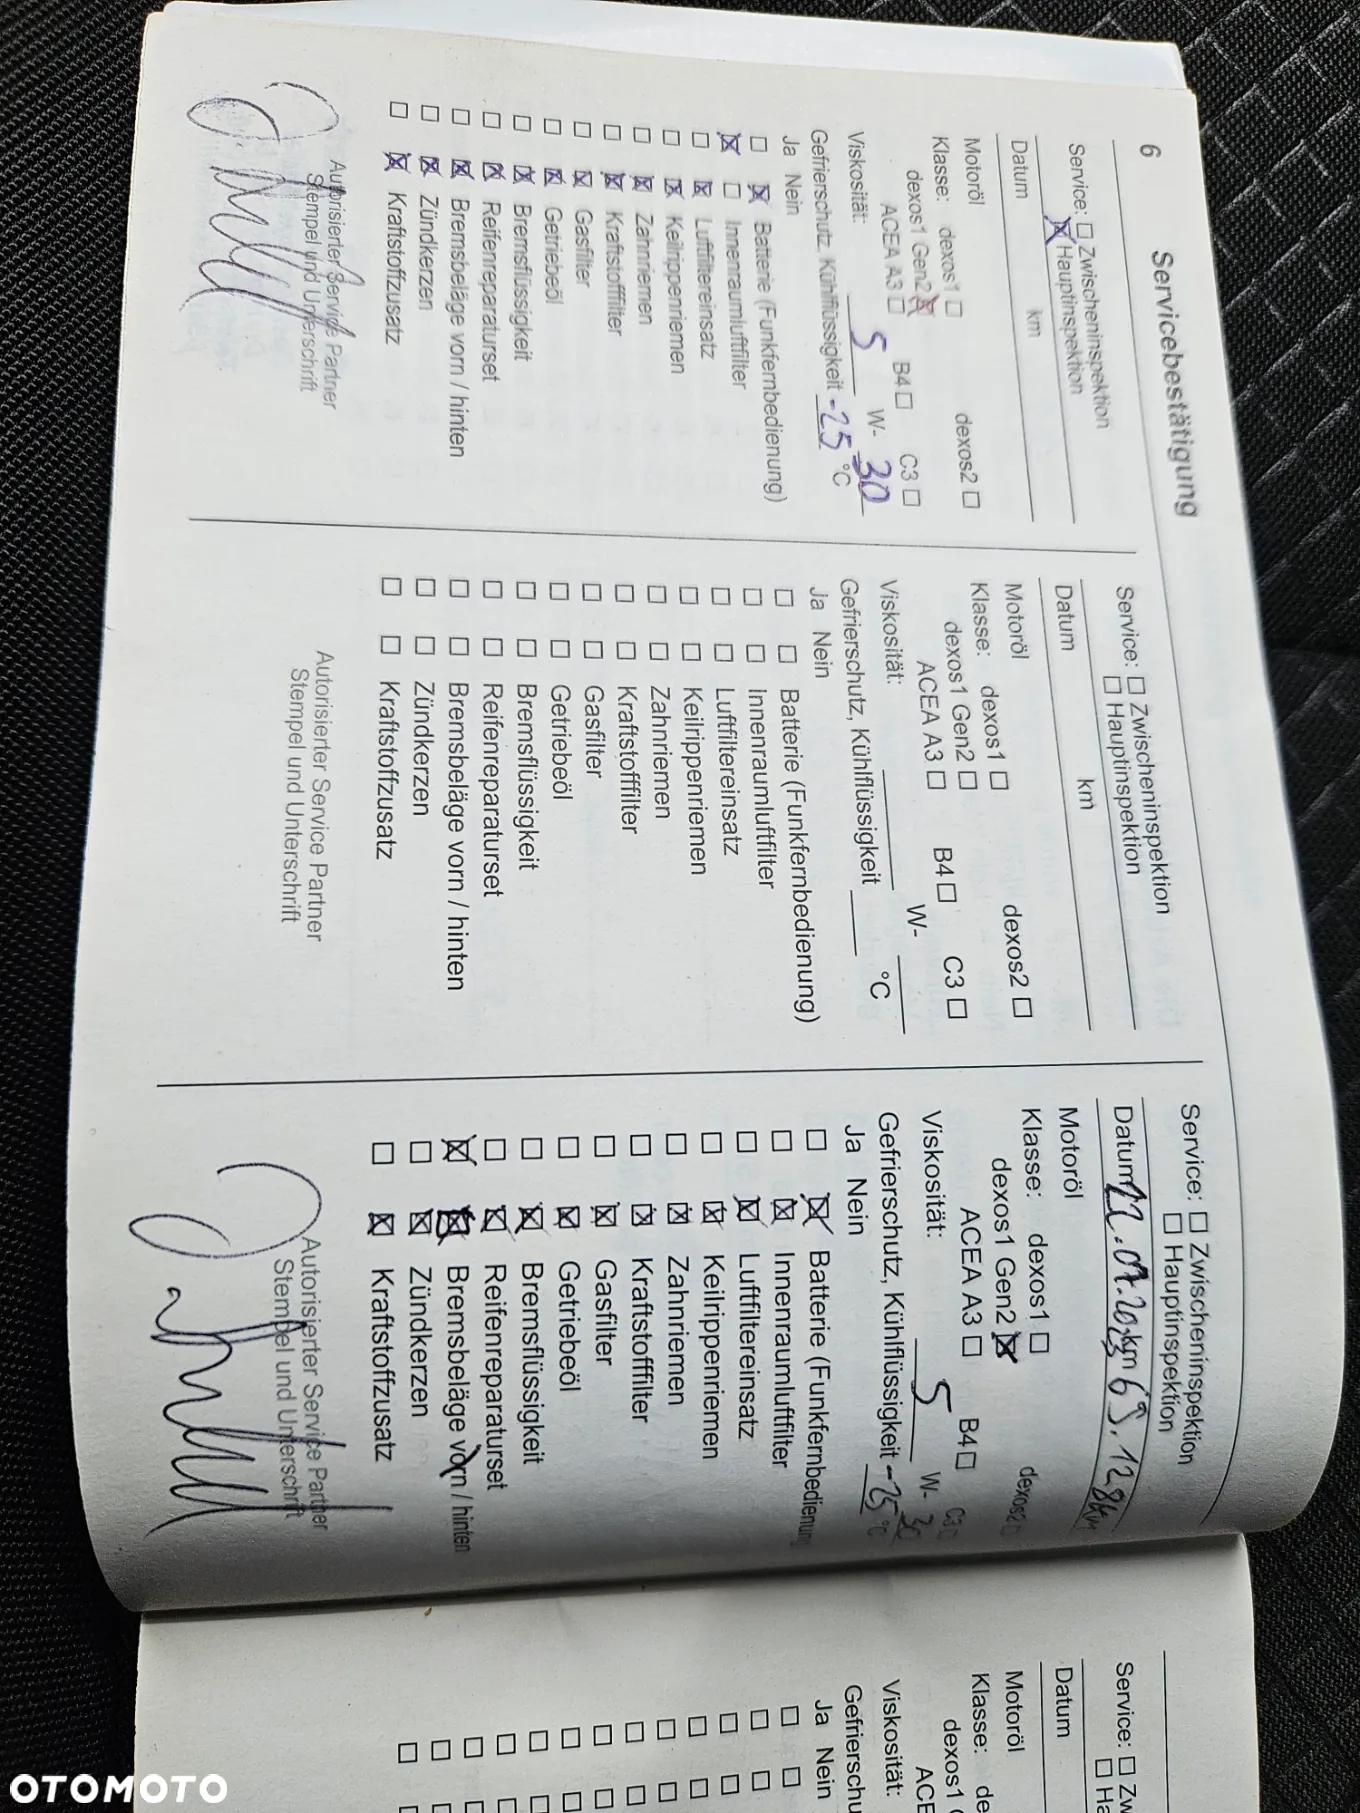 6
Servicebestätigung
Service: ☐ Zwischeninspektion
☒ Hauptinspektion
Datum km
Motoröl
Klasse: dexos1 ☐ dexos2 ☐
dexos1 Gen2 ☒
ACEA A3 ☐ B4 ☐ C3 ☐
Viskosität: 5 W- 30
Gefrierschutz, Kühlflüssigkeit -25 °C
Ja Nein
☐ ☒ Batterie (Funkfernbedienung)
☒ ☐ Innenraumluftfilter
☐ ☒ Luftfiltereinsatz
☐ ☒ Keilrippenriemen
☐ ☒ Zahnriemen
☐ ☒ Kraftstofffilter
☐ ☒ Gasfilter
☐ ☒ Getriebeöl
☐ ☒ Bremsflüssigkeit
☐ ☒ Reifenreparaturset
☐ ☒ Bremsbeläge vorn / hinten
☐ ☒ Zündkerzen
☐ ☒ Kraftstoffzusatz
Autorisierter Service Partner
Stempel und Unterschrift
Service: ☐ Zwischeninspektion
☐ Hauptinspektion
Datum km
Motoröl
Klasse: dexos1 ☐ dexos2 ☐
dexos1 Gen2 ☐
ACEA A3 ☐ B4 ☐ C3 ☐
Viskosität: W-
Gefrierschutz, Kühlflüssigkeit °C
Ja Nein
☐ ☐ Batterie (Funkfernbedienung)
☐ ☐ Innenraumluftfilter
☐ ☐ Luftfiltereinsatz
☐ ☐ Keilrippenriemen
☐ ☐ Zahnriemen
☐ ☐ Kraftstofffilter
☐ ☐ Gasfilter
☐ ☐ Getriebeöl
☐ ☐ Bremsflüssigkeit
☐ ☐ Reifenreparaturset
☐ ☐ Bremsbeläge vorn / hinten
☐ ☐ Zündkerzen
☐ ☐ Kraftstoffzusatz
Autorisierter Service Partner
Stempel und Unterschrift
Service: ☐ Zwischeninspektion
☐ Hauptinspektion
Datum 22.07.2023 km 69.128km
Motoröl
Klasse: dexos1 ☐ dexos2 ☐
dexos1 Gen2 ☒
ACEA A3 ☐ B4 ☐ C3 ☐
Viskosität: 5 W- 30
Gefrierschutz, Kühlflüssigkeit -25 °C
Ja Nein
☐ ☒ Batterie (Funkfernbedienung
☐ ☒ Innenraumluftfilter
☐ ☒ Luftfiltereinsatz
☐ ☒ Keilrippenriemen
☐ ☒ Zahnriemen
☐ ☒ Kraftstofffilter
☐ ☒ Gasfilter
☐ ☒ Getriebeöl
☐ ☒ Bremsflüssigkeit
☐ ☒ Reifenreparaturset
☒ ☒ Bremsbeläge vorn / hinten
☐ ☒ Zündkerzen
☐ ☒ Kraftstoffzusatz
Autorisierter Service Partner
Stempel und Unterschrift
Service: ☐ Zw
☐ Ha
Datum
Motoröl
Klasse: de
dexos1 G
ACE
Viskosität:
Gefrierschu
Ja Nein
OTOMOTO